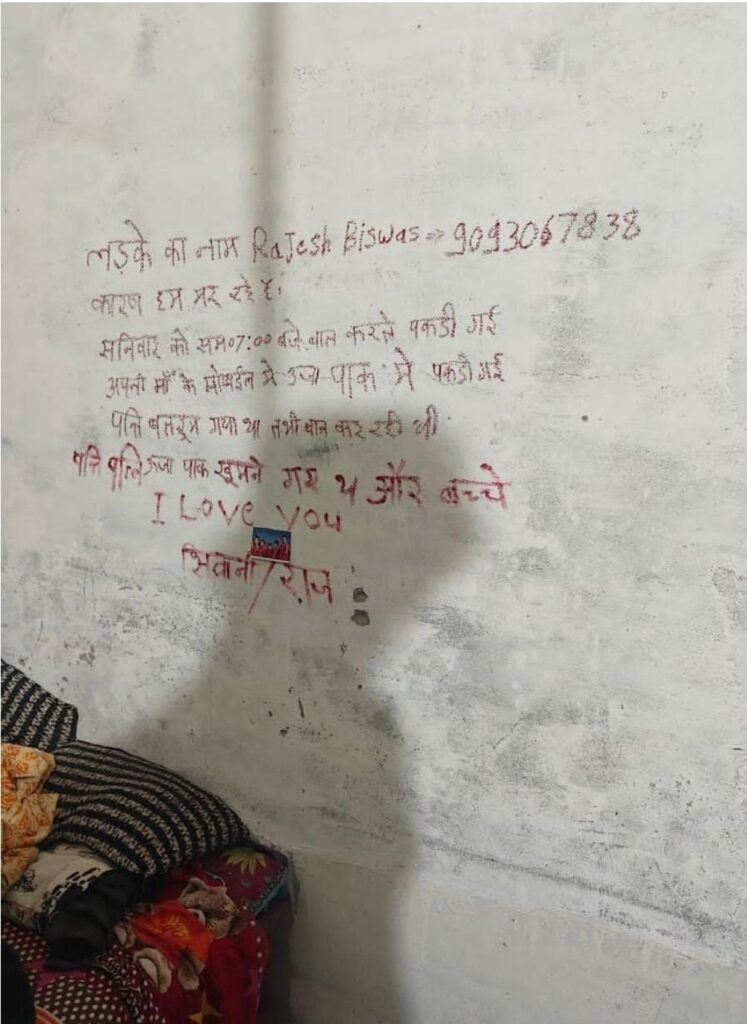 लड़के का नाम RaJesh Biswas => 9093067838
कारण हम मर रहे है।
सनिवार को सम 07:00 बजे बात करते पकडी गई
अपनी माँ के मोबाईल मे ऊजा पाक मे पकडी गई
पति बतरूम गया था तभी बात कर रही थी
पत्ति पत्नि ऊजा पाक खूमने गए थे और बच्चे
I Love you
सिवानी/राज